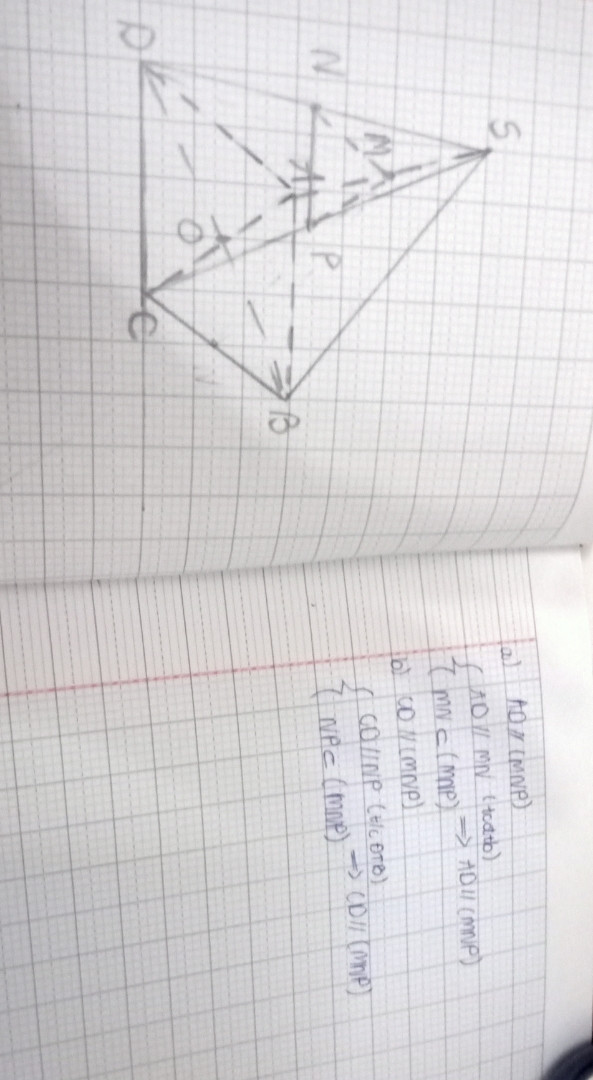 S
N
M
D
A
P
O
C
B
a) AD // (MNP)
{ AD // MN (tcđtb)
{ MN ⊂ (MNP) => AD // (MNP)
b) CD // (MNP)
{ CD // NP (t/c ĐTB)
{ NP ⊂ (MNP) => CD // (MNP)